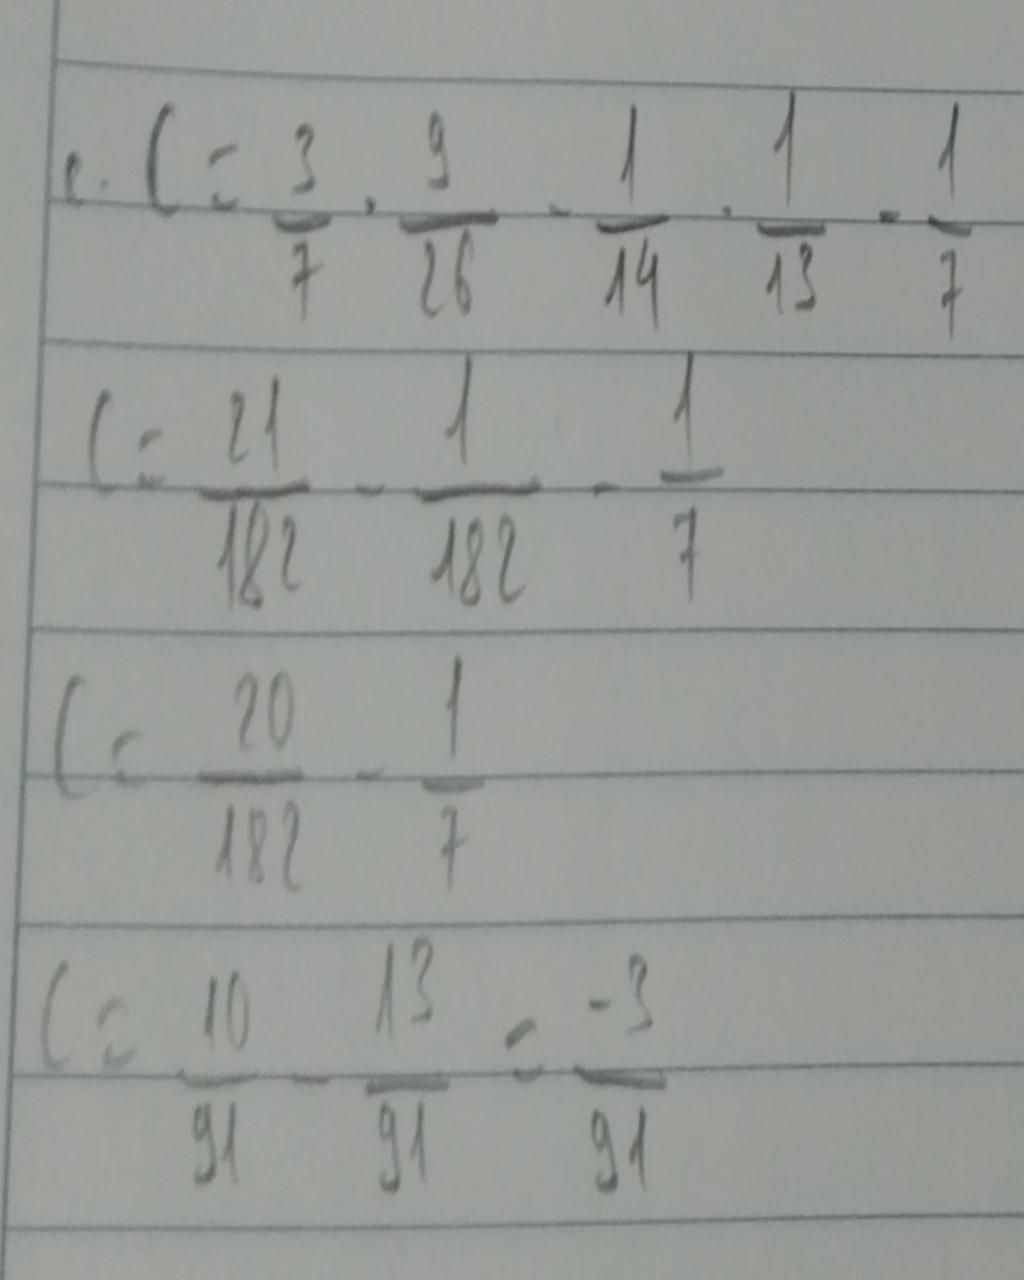 c. C = 3/7 . 9/26 - 1/14 . 1/13 - 1/7
C = 21/182 - 1/182 - 1/7
C = 20/182 - 1/7
C = 10/91 - 13/91 = -3/91